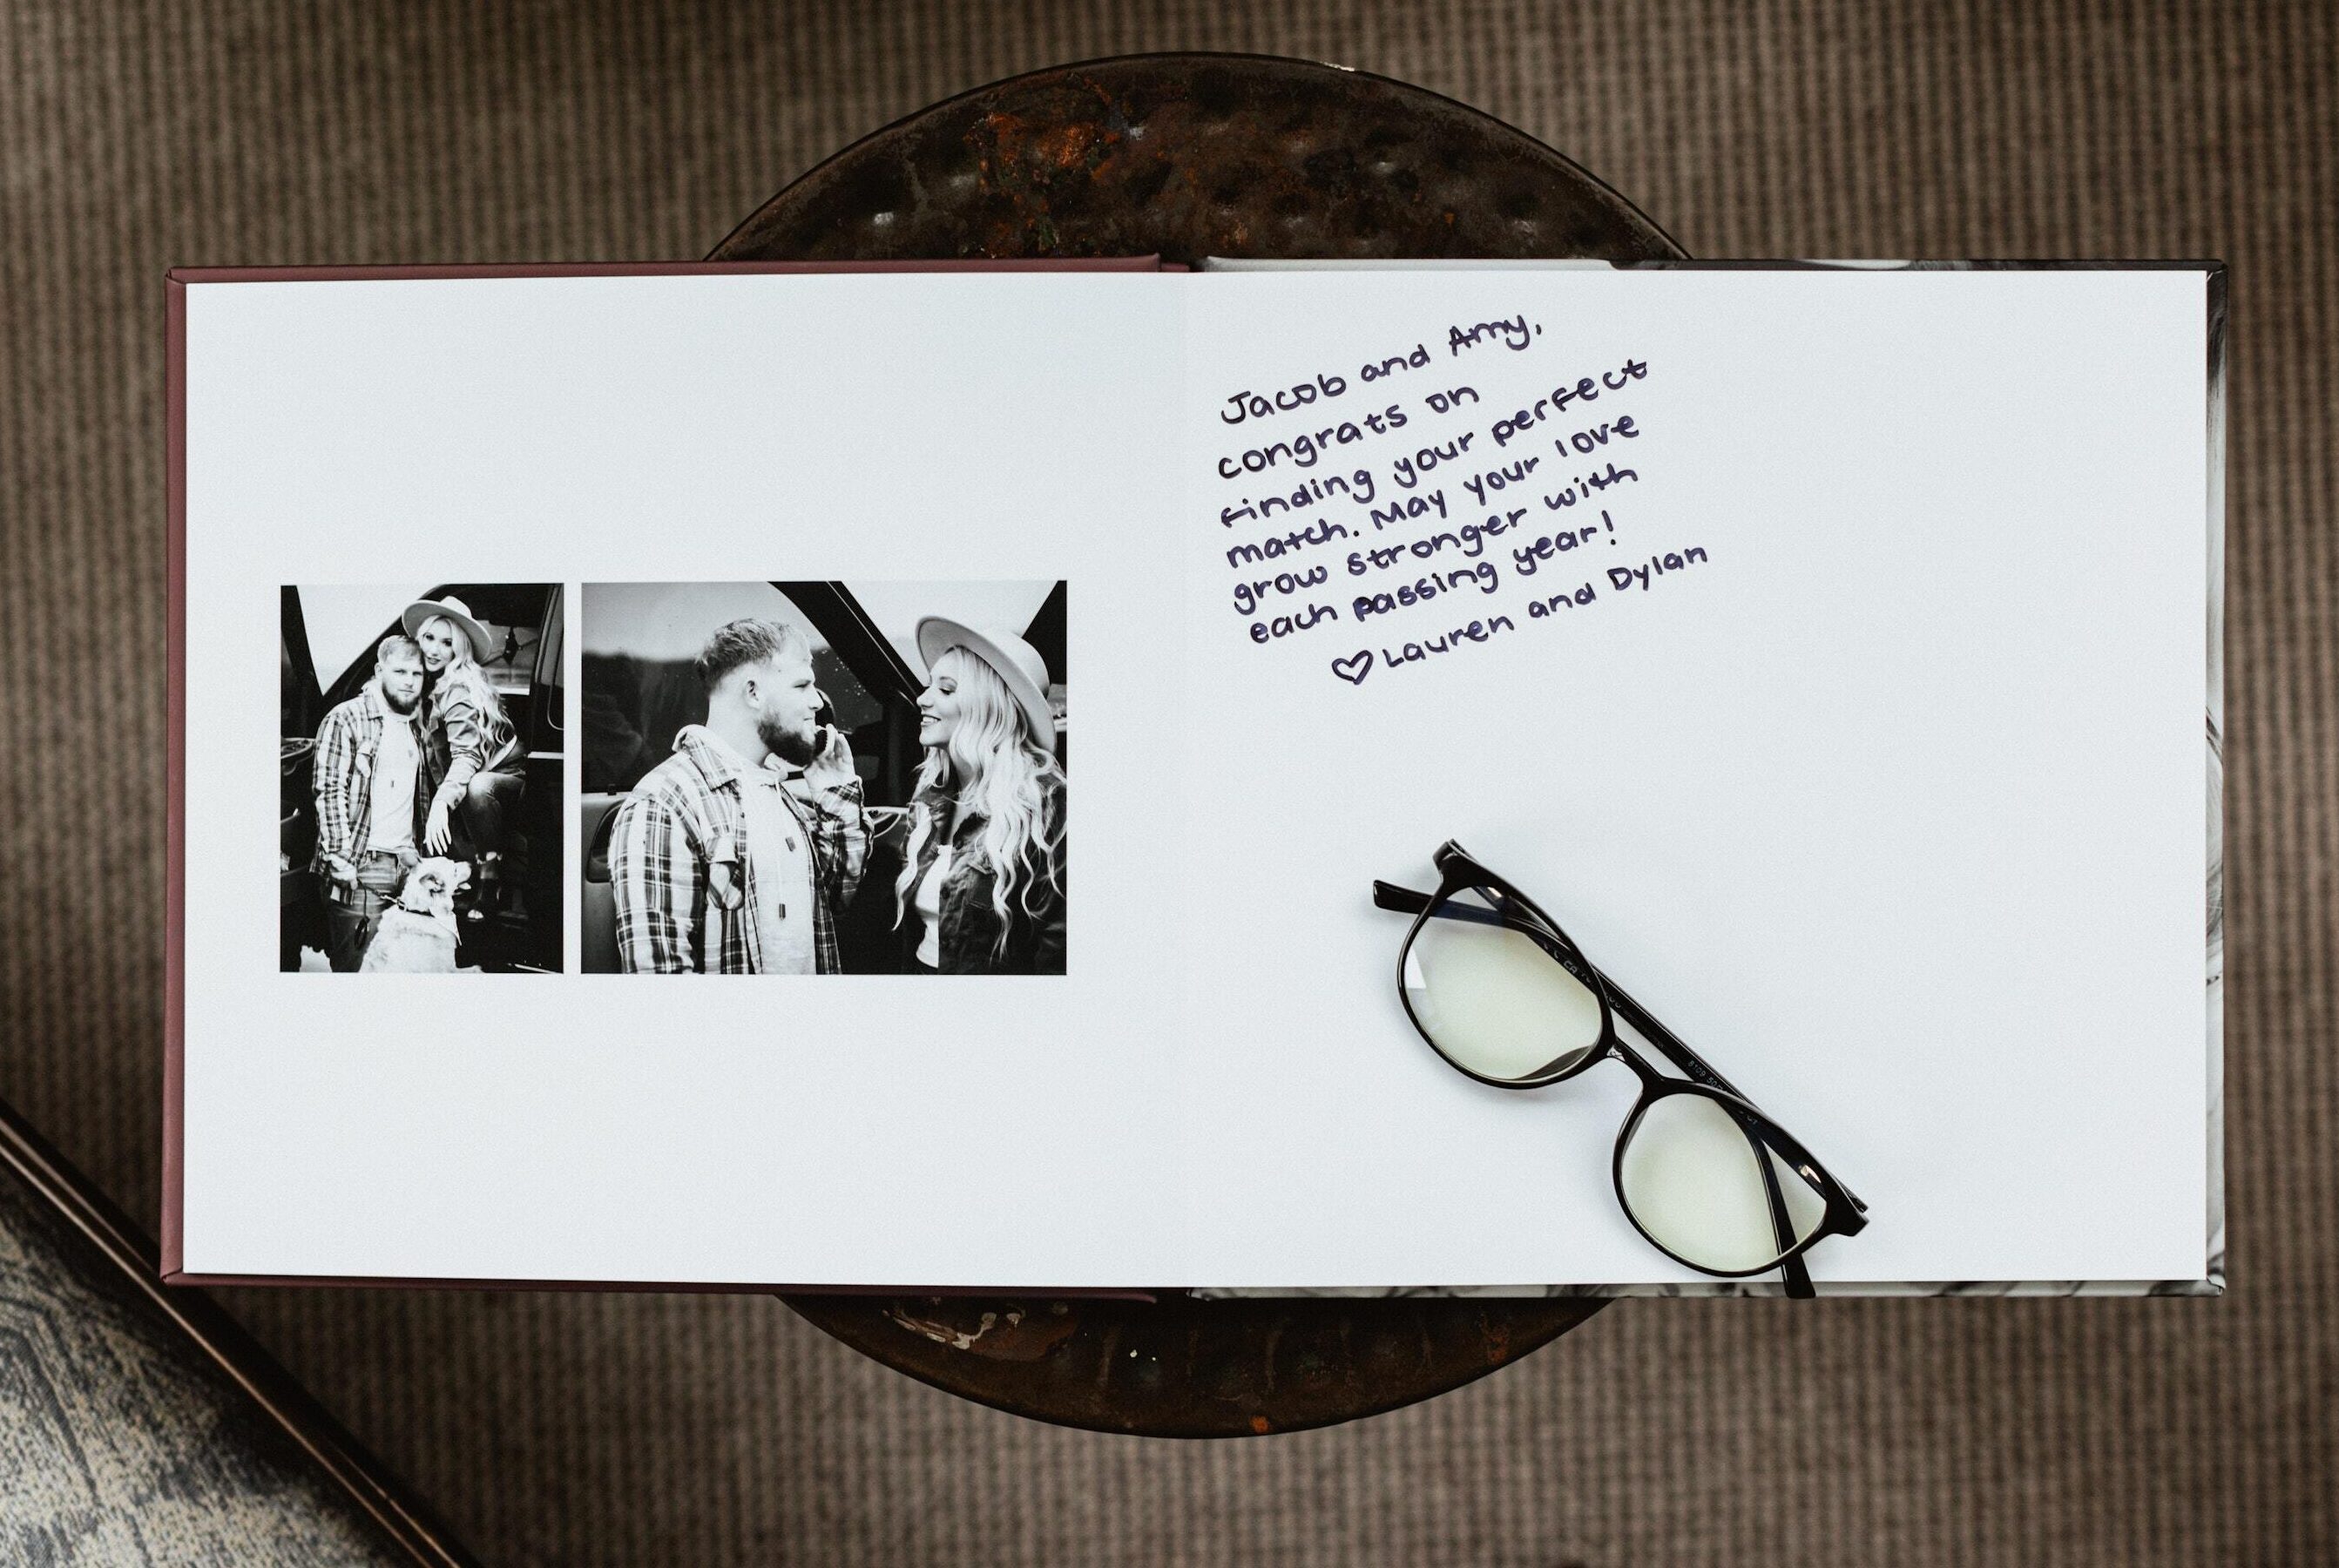 Jacob and Amy,
congrats on
finding your perfect
match. May your love
grow stronger with
each passing year!
♡ Lauren and Dylan